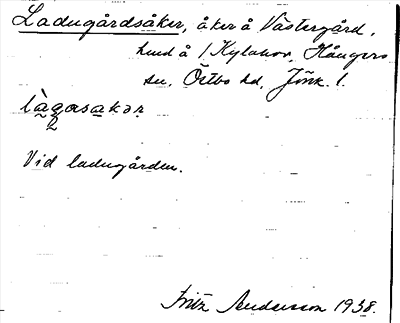 Ladugårdsåker, åker å Västergård,
hmd å / Kylahov, Hångers
sn, Östbo hd, Jönk. l.
Vid ladugården.
Fritz Andersson 1938.